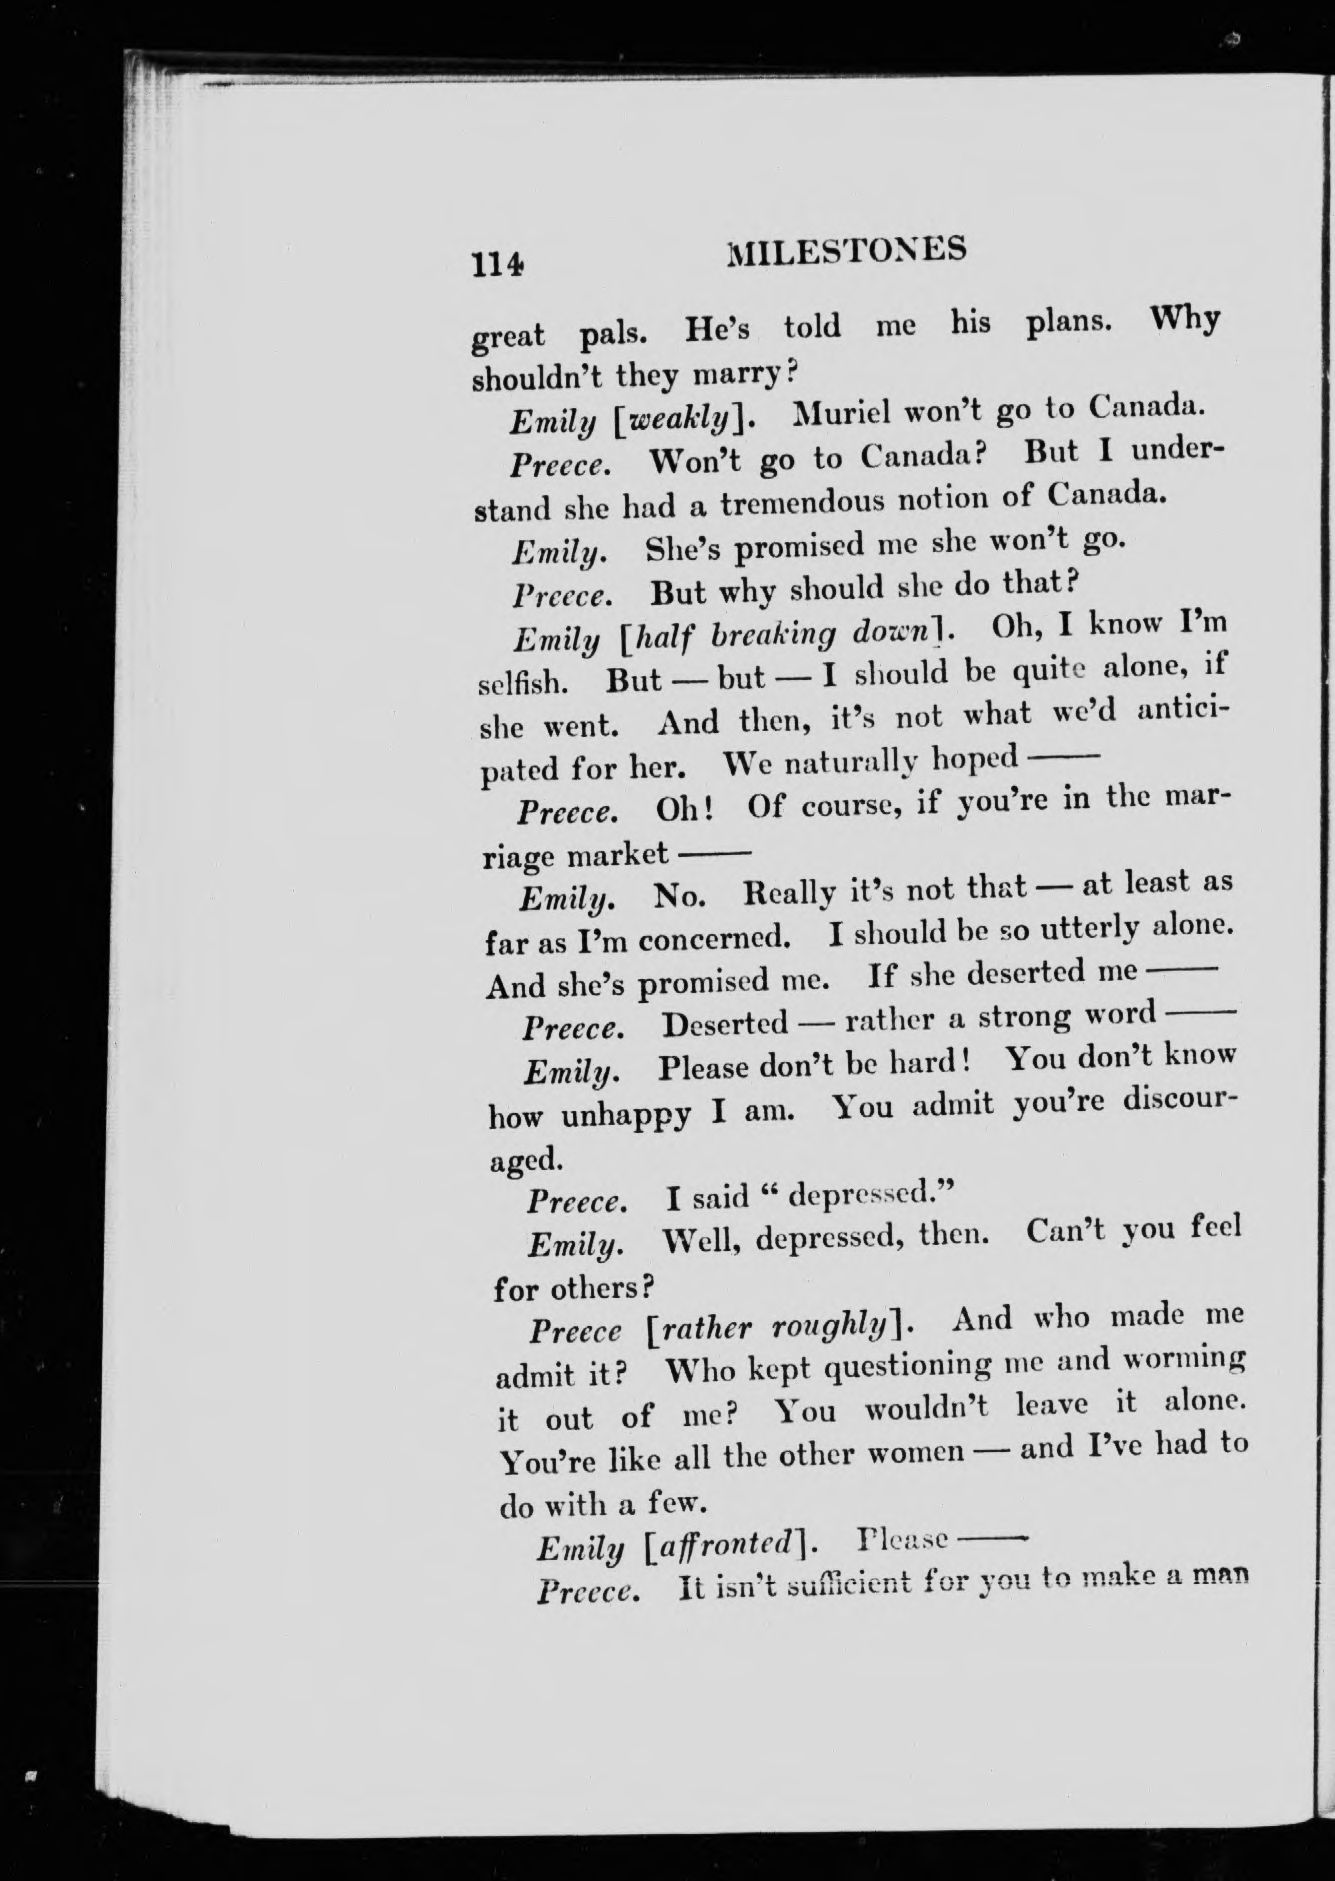 114 MILESTONES
great pals. He's told me his plans. Why
shouldn't they marry?
Emily [weakly]. Muriel won't go to Canada.
Preece. Won't go to Canada? But I under-
stand she had a tremendous notion of Canada.
Emily. She's promised me she won't go.
Preece. But why should she do that?
Emily [half breaking down]. Oh, I know I'm
selfish. But — but — I should be quite alone, if
she went. And then, it's not what we'd antici-
pated for her. We naturally hoped ——
Preece. Oh! Of course, if you're in the mar-
riage market ——
Emily. No. Really it's not that — at least as
far as I'm concerned. I should be so utterly alone.
And she's promised me. If she deserted me ——
Preece. Deserted — rather a strong word ——
Emily. Please don't be hard! You don't know
how unhappy I am. You admit you're discour-
aged.
Preece. I said “ depressed.”
Emily. Well, depressed, then. Can't you feel
for others?
Preece [rather roughly]. And who made me
admit it? Who kept questioning me and worming
it out of me? You wouldn't leave it alone.
You're like all the other women — and I've had to
do with a few.
Emily [affronted]. Please ——
Preece. It isn't sufficient for you to make a man